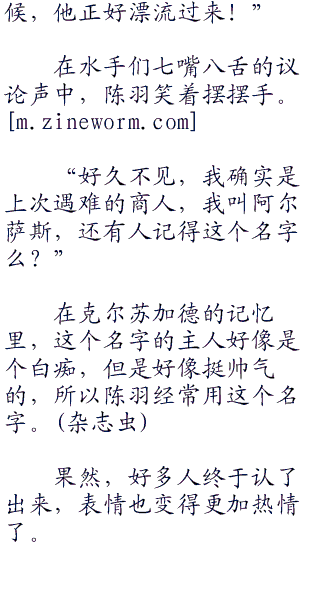 候，他正好漂流过来！”
在水手们七嘴八舌的议
论声中，陈羽笑着摆摆手。
[m.zineworm.com]
“好久不见，我确实是
上次遇难的商人，我叫阿尔
萨斯，还有人记得这个名字
么？”
在克尔苏加德的记忆
里，这个名字的主人好像是
个白痴，但是好像挺帅气
的，所以陈羽经常用这个名
字。(杂志虫)
果然，好多人终于认了
出来，表情也变得更加热情
了。